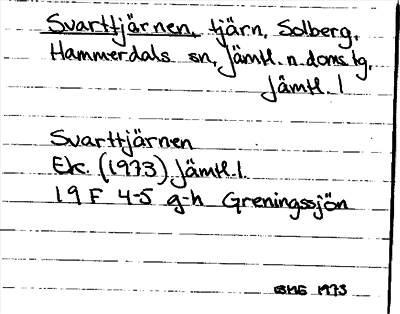 Svarttjärnen, tjärn, Solberg,
Hammerdals sn, Jämtl. n. doms.lg,
Jämtl. l
Svarttjärnen
Ek. (1973) Jämtl. l.
19 F 4-5 g-h Greningssjön
1973